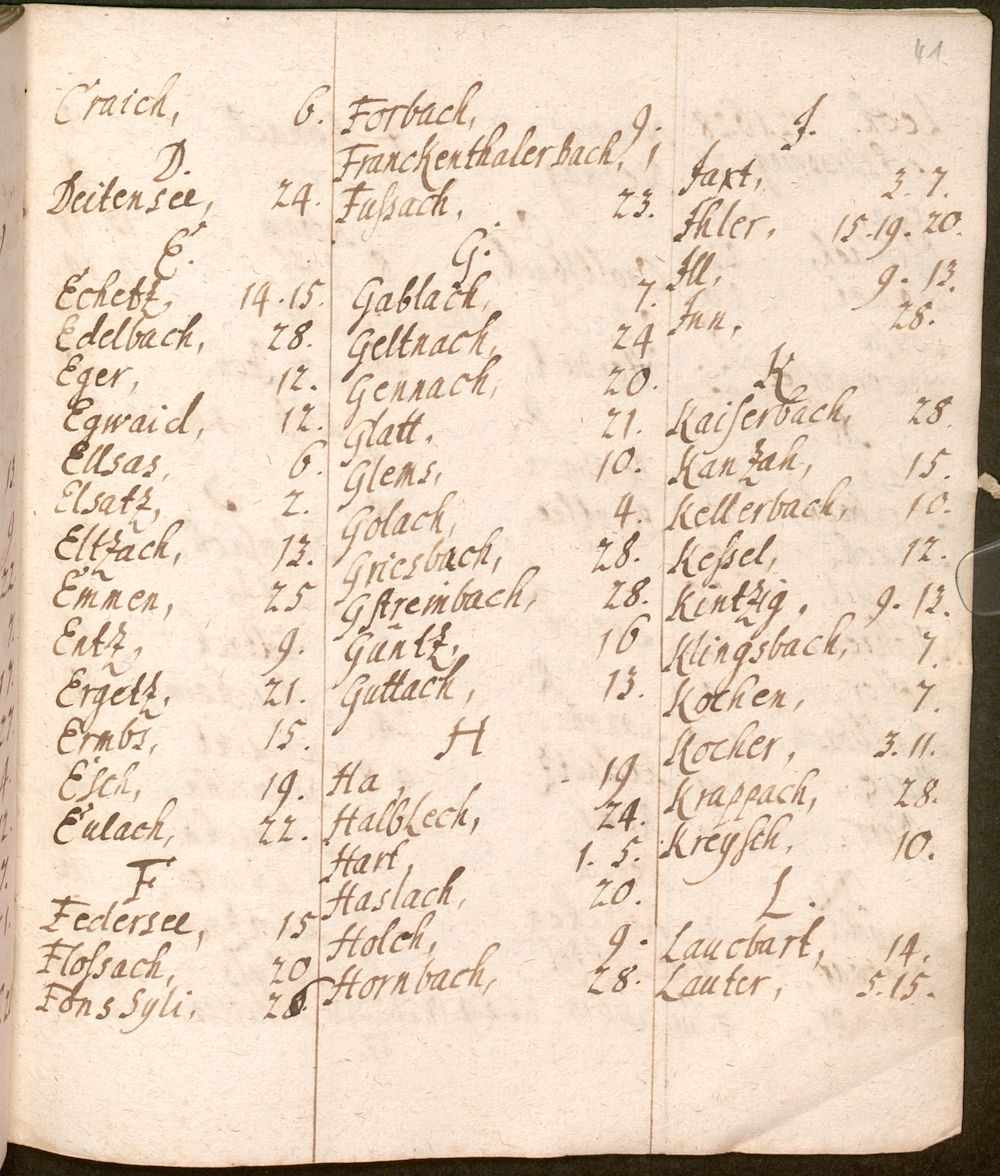 41
Craich, 6.
D.
Deitensee, 24.
E.
Echetz, 14.15.
Edelbach, 28.
Eger, 12.
Egwaid, 12.
Ellsas, 6.
Elsatz, 2.
Eltzach, 13.
Emmen, 25
Entz, 9.
Ergetz, 21.
Ermbs, 15.
Esch, 19.
Eulach, 22.
F
Federsee, 15
Flossach, 20
Fons Syli, 28
Forbach, 9.
Franckenthalerbach, 1
Fussach, 23.
G.
Gablach, 7.
Geltnach, 24
Gennach, 20.
Glatt, 21.
Glems, 10.
Golach, 4.
Griesbach, 28.
Gstreimbach, 28.
Güntz, 16
Guttach, 13.
H
Ha, 19
Halblech, 24.
Hart, 1. 5.
Haslach, 20.
Holch, 9.
Hornbach, 28.
J.
Jaxt, 3. 7.
Jhler, 15.19.20.
Jll, 9. 13.
Jnn, 28.
K
Kaiserbach, 28
Kanzah, 15.
Kellerbach, 10.
Kessel, 12.
Kintzig, 9. 13.
Klingsbach, 7.
Kochen, 7.
Kocher, 3. 11.
Krappach, 28.
Kreysch, 10.
L.
Laucbart, 14.
Lauter, 5.15.